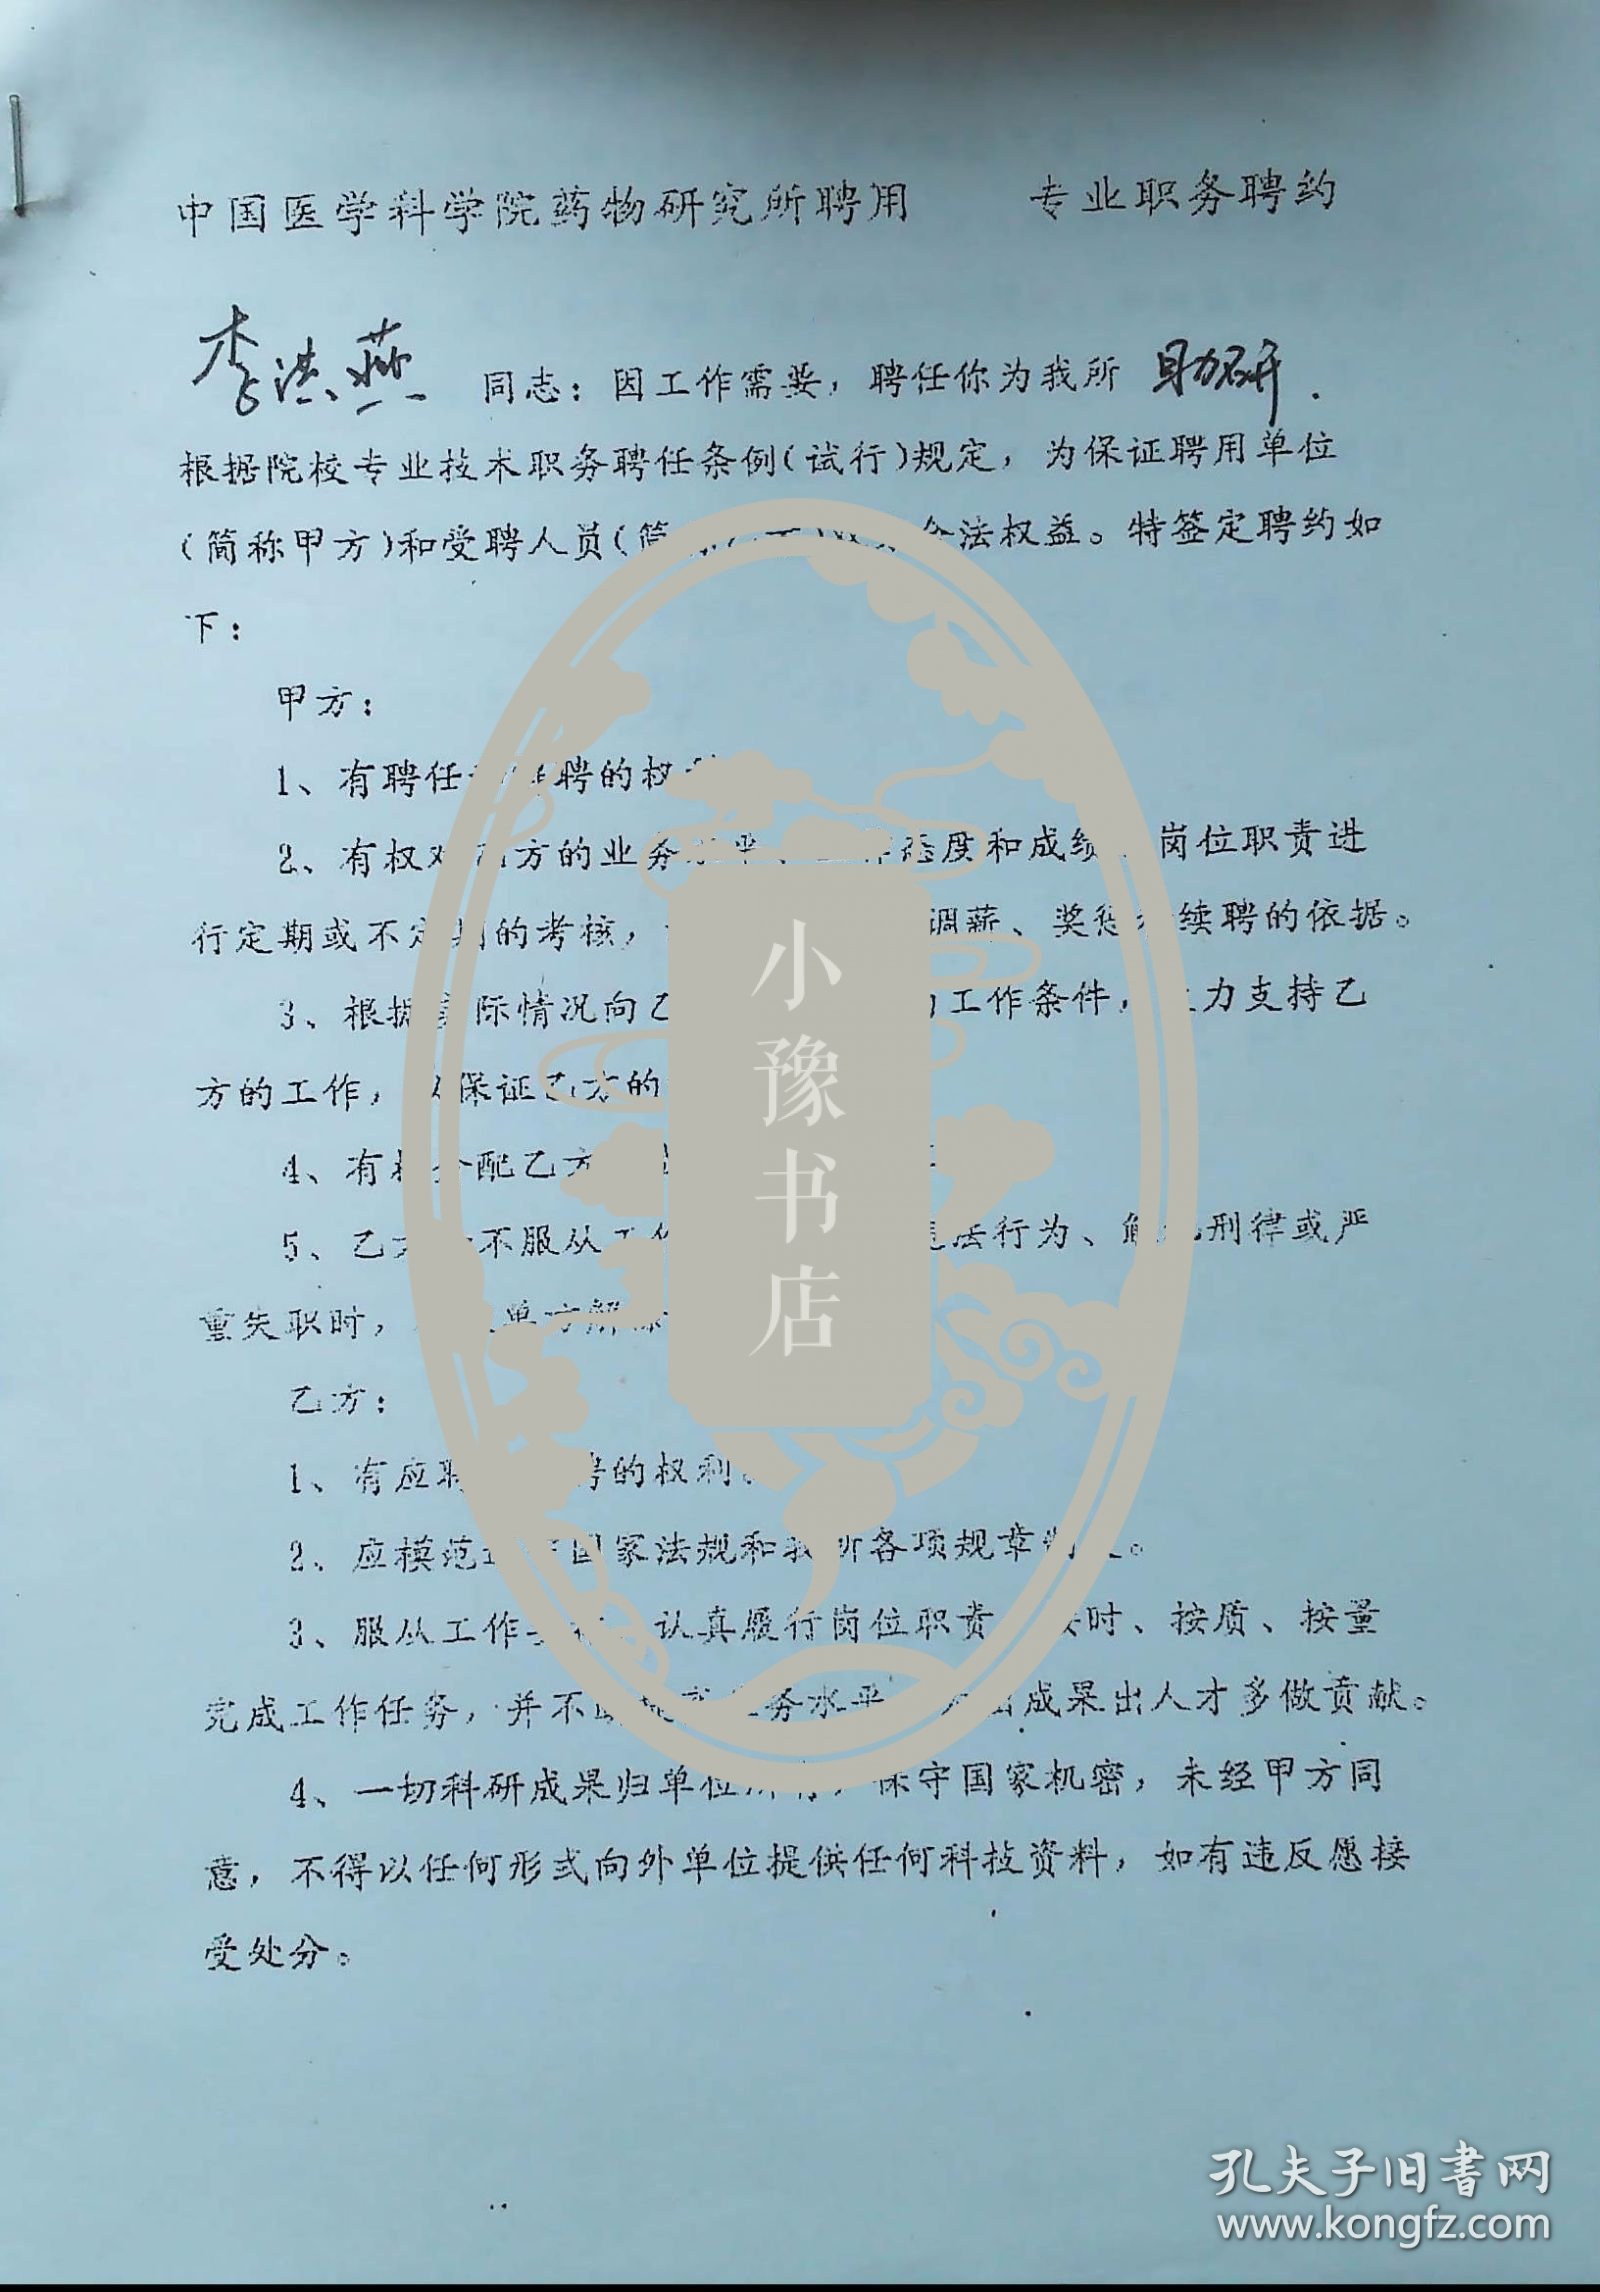 中国医学科学院药物研究所聘用 专业职务聘约
李洪燕 同志：因工作需要，聘任你为我所 助研.
根据院校专业技术职务聘任条例(试行)规定，为保证聘用单位
(简称甲方)和受聘人员(简 法权益。特签定聘约如
下：
甲方：
1、有聘任 聘的权
2、有权对乙方的业务水平、 态度和成绩 岗位职责进
行定期或不定期的考核， 调薪、奖惩 续聘的依据。
3、根据实际情况向乙 工作条件， 力支持乙
方的工作， 保证乙方的
4、有权分配乙方
5、乙方 不服从工作 法行为、触犯刑律或严
重失职时， 单方解除
乙方：
1、有应聘 聘的权利。
2、应模范 国家法规和我所各项规章制度。
3、服从工作 认真履行岗位职责 按时、按质、按量
完成工作任务，并不断提高业务水平 成果出人才多做贡献。
4、一切科研成果归单位所有，保守国家机密，未经甲方同
意，不得以任何形式向外单位提供任何科技资料，如有违反愿接
受处分。
小豫书店
孔夫子旧书网
www.kongfz.com